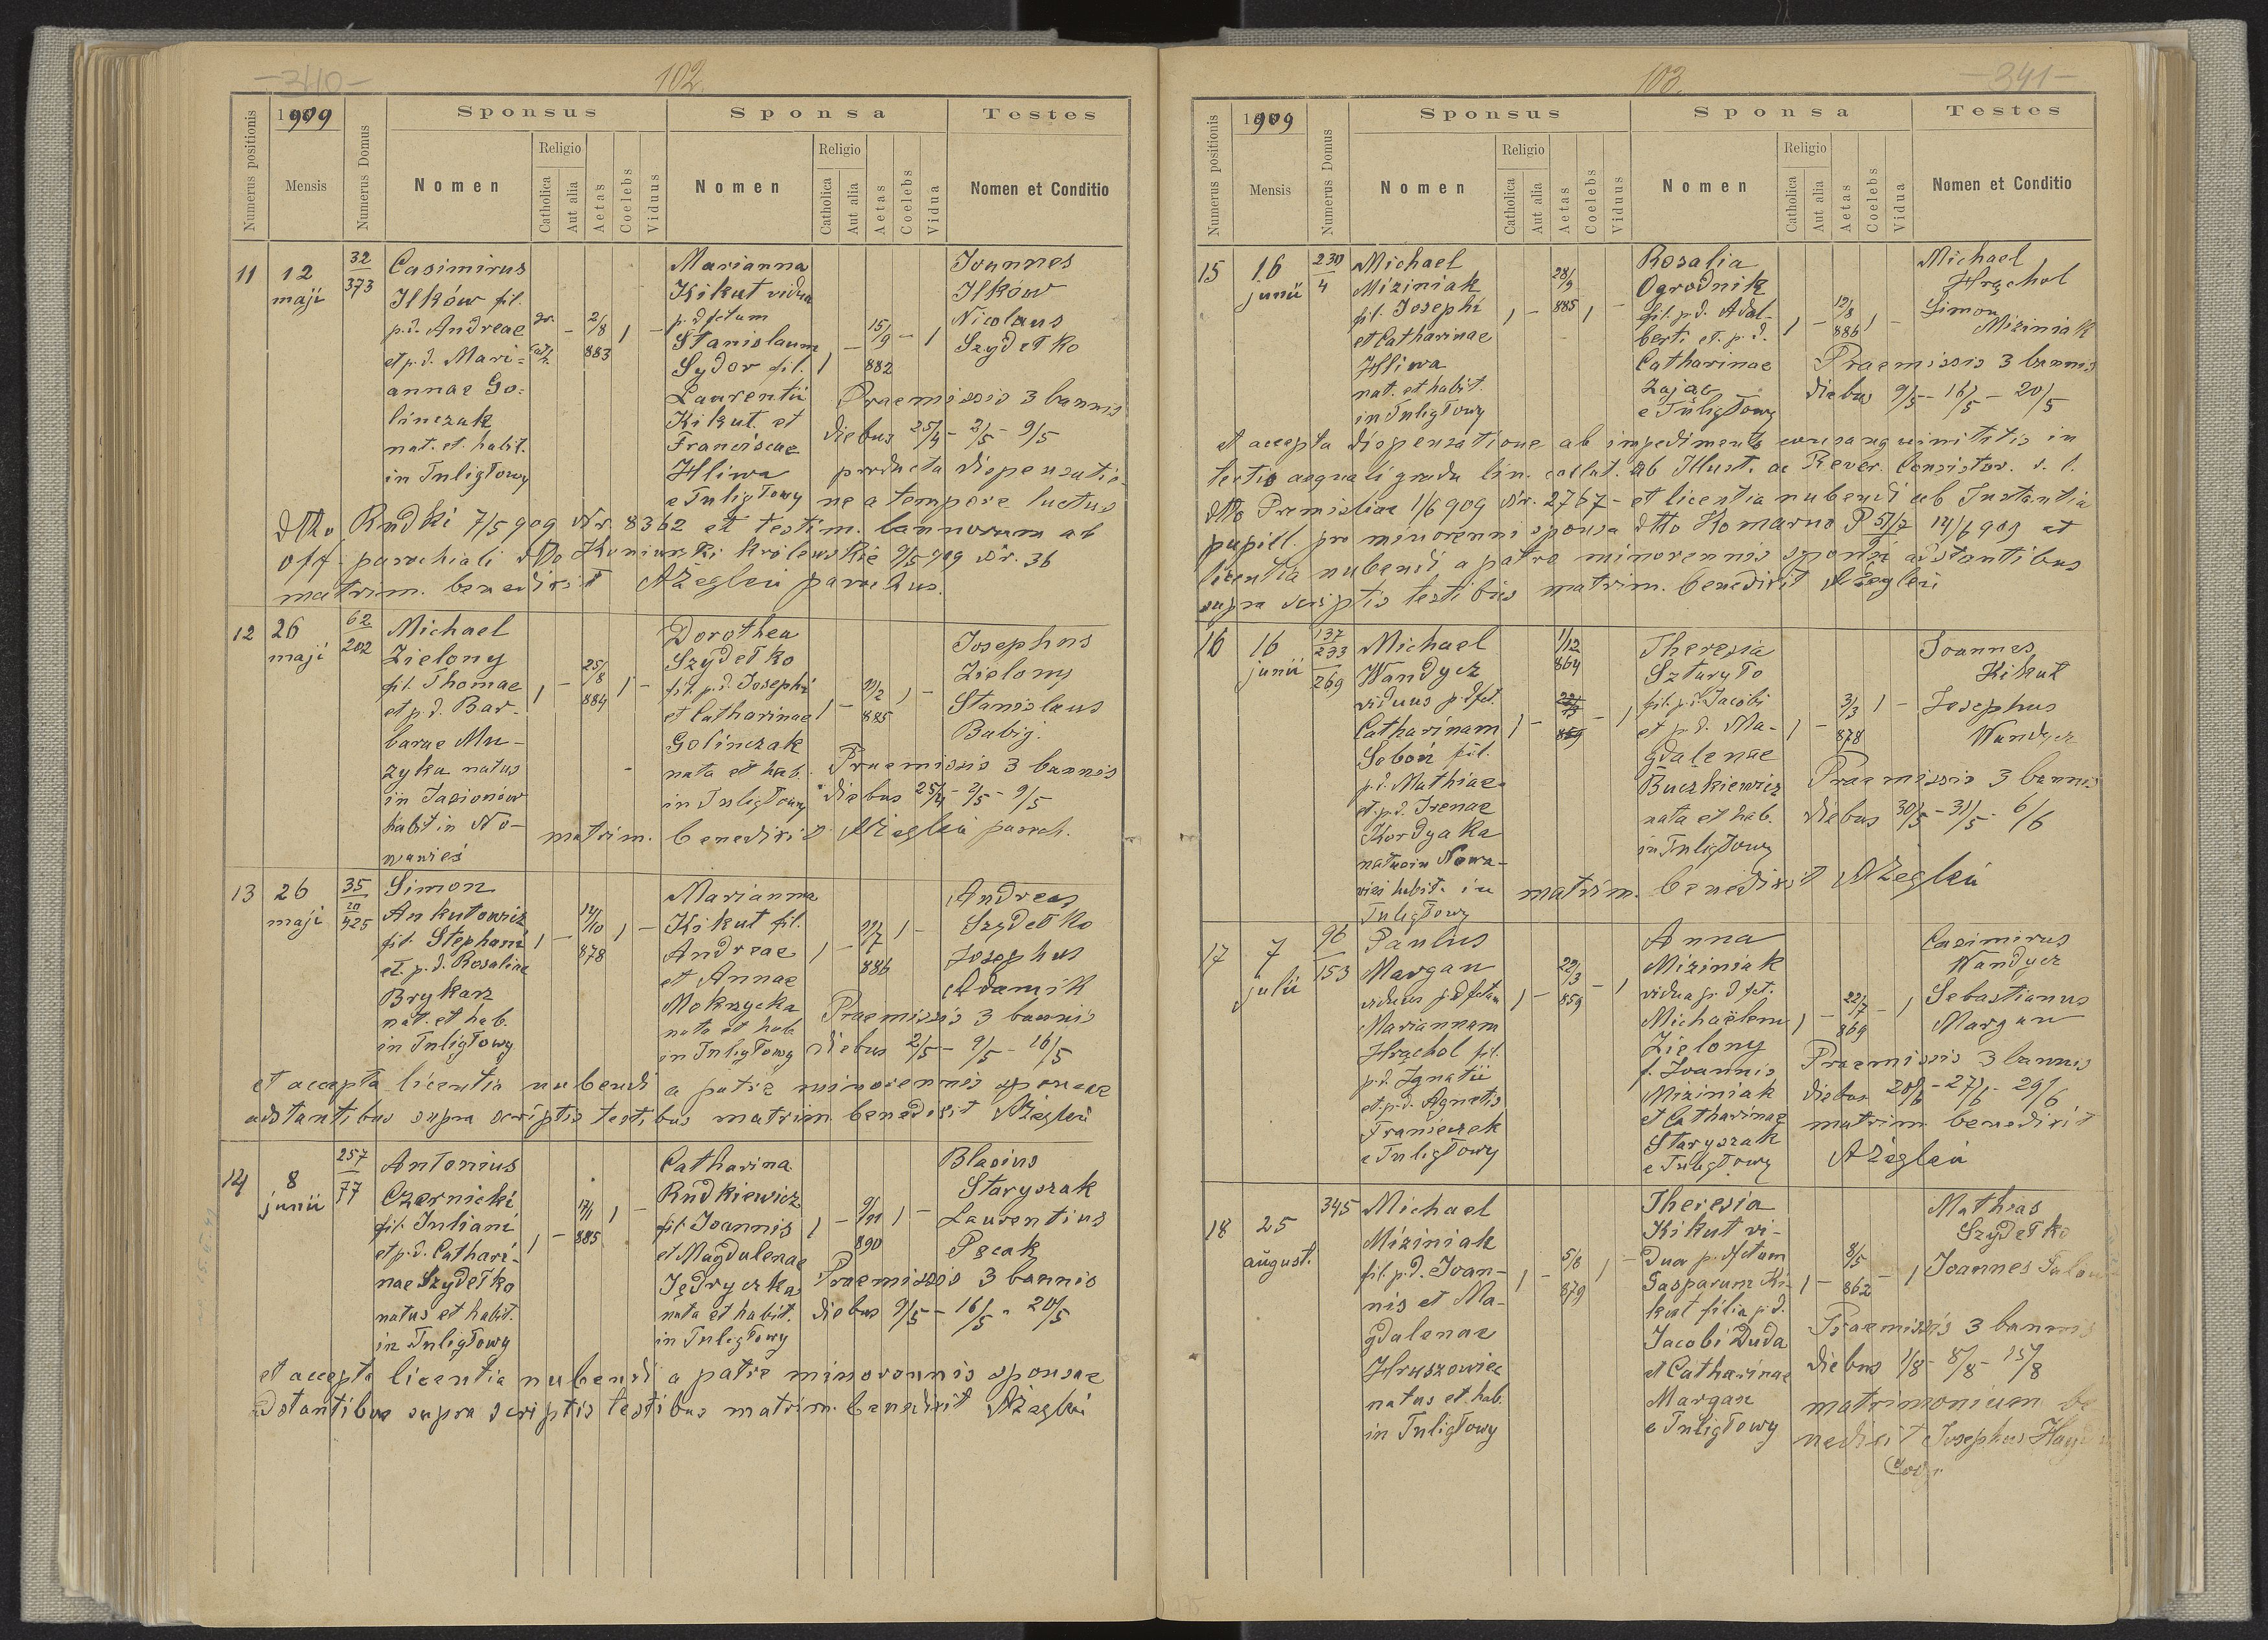 -340-
102.
Numerus positionis
1909
Mensis
Numerus Domus
Sponsus
Nomen
Religio
Catholica
Aut alia
Aetas
Coelebs
Viduus
Sponsa
Nomen
Religio
Catholica
Aut alia
Aetas
Coelebs
Vidua
Testes
Nomen et Conditio
11
12
maji
32
373
Casimirus
Ilków fil.
p.d. Andreae
et p.d. Mari-
annae Go-
linczak
nat. et habit.
in Tuligłowy
gr.
cath.
-
2/8
883
1
-
Marianna
Kikut vidua
p. dfctum
Stanislaum
Sydor fil.
Laurentii
Kikut et
Franciscae
Hliwa
e Tuligłowy
1
-
15/9
882
-
1
Joannes
Ilków
Nicolaus
Szydełko
Praemissis 3 bannis
diebus 25/4 - 2/5 - 9/5
producta dispensatio-
ne a tempore luctus
dtto Rudki 7/5 909 Nr. 8362 et testim. bannorum ab
off. parochiali dtto Koniuszki królewskie 9/5 909 Nr. 36
matrim. benedixit AŻegleń parochus.
12
26
maji
62
202
Michael
Zielony
fil. Thomae
et p.d. Bar-
barae Mu-
zyka natus
in Jasionów
habit in No-
wawieś
1
-
25/8
884
1
-
Dorothea
Szydełko
fil. p.d. Josephi
et Catharinae
Golinczak
nata et hab.
in Tuligłowy
1
-
885
1
-
Josephus
Zielony
Stanislaus
Babig.
Praemissis 3 bannis
diebus 25/4 - 2/5 - 9/5
matrim. benedixit AŻegleń paroch.
13
26
maji
35
425
Simon
Ankutowicz
fil. Stephani
et. p.d. Rosaliae
Brykarz
nat. et hab.
in Tuligłowy
1
-
878
1
-
Marianna
Kikut fil.
Andreae
et Annae
Mokrzycka
nata et hab
in Tuligłowy
1
-
886
1
-
Andreas
Szydełko
Josephus
Adamik
Praemissis 3 bannis
diebus 2/5 - 9/5 - 16/5
et accepta licentia nubendi a patre minorennis sponsae
adstantibus supra scriptis testibus matrim. benedixit AŻegleń
14
8
junii
257
77
Antonius
Czernicki
fil. Juliani
et p.d. Cathari-
nae Szydełko
natus et habit.
in Tuligłowy
1
-
17/1
885
1
-
Catharina
Rudkiewicz
fil. Joannis
et Magdalenae
Jędryczka
nata et habit.
in Tuligłowy
1
-
9/11
890
1
-
Blasius
Staryszak
Laurentius
Pęcak
Praemissis 3 bannis
diebus 9/5 - 16/5 - 20/5
et accepta licentia nubendi a patre minorennis sponsae
adstantibus supra scriptis testibus matrim. benedixit AŻegleń
103.
-341-
Numerus positionis
1909
Mensis
Numerus Domus
Sponsus
Nomen
Religio
Catholica
Aut alia
Aetas
Coelebs
Viduus
Sponsa
Nomen
Religio
Catholica
Aut alia
Aetas
Coelebs
Vidua
Testes
Nomen et Conditio
15
16
junii
230
4
Michael
Miziniak
fil. Josephi
et Catharinae
Hliwa
nat. et habit.
in Tuligłowy
1
-
28/9
885
1
-
Rosalia
Ogrodnik
fil. p.d. Adal-
berti et. p.d.
Catharinae
Zając
e Tuligłowy
1
-
886
1
-
Michael
Hrąchol
Simon
Miziniak
Praemissis 3 bannis
diebus 9/5 - 16/5 - 20/5
et accepta dispensatione ab impedimento consanguinitatis in
tertio aequali gradu lin. collat. ab Illust. ac Rever. Consistor. r. l.
dtto Premisliae 1/6 909 Nr. 2767 - et licentia nubendi ab Instantia
pupill. pro minorenni sponsa dtto Komarno P 51/7 14/6 909 et
licentia nubendi a patre minorennis sponsi adstantibus
supra scriptis testibus matrim. benedixit AŻegleń
16
16
junii
137
233
269
Michael
Wandycz
viduus p. dfct.
Catharinam
Soboń fil.
p.d. Mathiae
et. p.d. Irenae
Kordyaka
natus in Nowa-
wieś habit. in
Tuligłowy
1
-
1/12
864
859
-
1
Theresia
Szturyło
fil. p.d. Jacobi
et p.d. Ma-
gdalenae
Buczkiewicz
nata et hab.
in Tuligłowy
1
-
3/3
878
1
-
Joannes
Kikut
Josephus
Wandycz
Praemissis 3 bannis
diebus 30/5 - 31/5 - 6/6
matrim. benedixit AŻegleń
17
7
julii
96
153
Paulus
Margan
viduus p. dfctam
Mariannam
Hrąchol fil.
p.d. Ignatii
et. p.d. Agnetis
Franieczek
e Tuligłowy
1
-
22/3
859
-
1
Anna
Miziniak
vidua p. dfct.
Michaëlem
Zielony
f. Joannis
Miziniak
et Catharinae
Staryszak
e Tuligłowy
1
-
22/7
869
-
1
Casimirus
Wandycz
Sebastianus
Margan
Praemissis 3 bannis
diebus 20/6 - 27/6 - 29/6
matrim. benedixit
AŻegleń
18
25
august.
345
Michael
Miziniak
fil. p.d. Joan-
nis et Ma-
gdalenae
Hruszowiec
natus et hab.
in Tuligłowy
1
-
5/6
879
1
-
Theresia
Kikut vi-
dua p. dfctum
Gasparum Ki-
kut filia p.d.
Jacobi Duda
et Catharinae
Margan
e Tuligłowy
1
-
8/5
862
-
1
Mathias
Szydełko
Joannes
Praemissis 3 bannis
diebus 1/8 - 8/8 - 15/8
matrimonium be
nedixit Josephus
Coop.